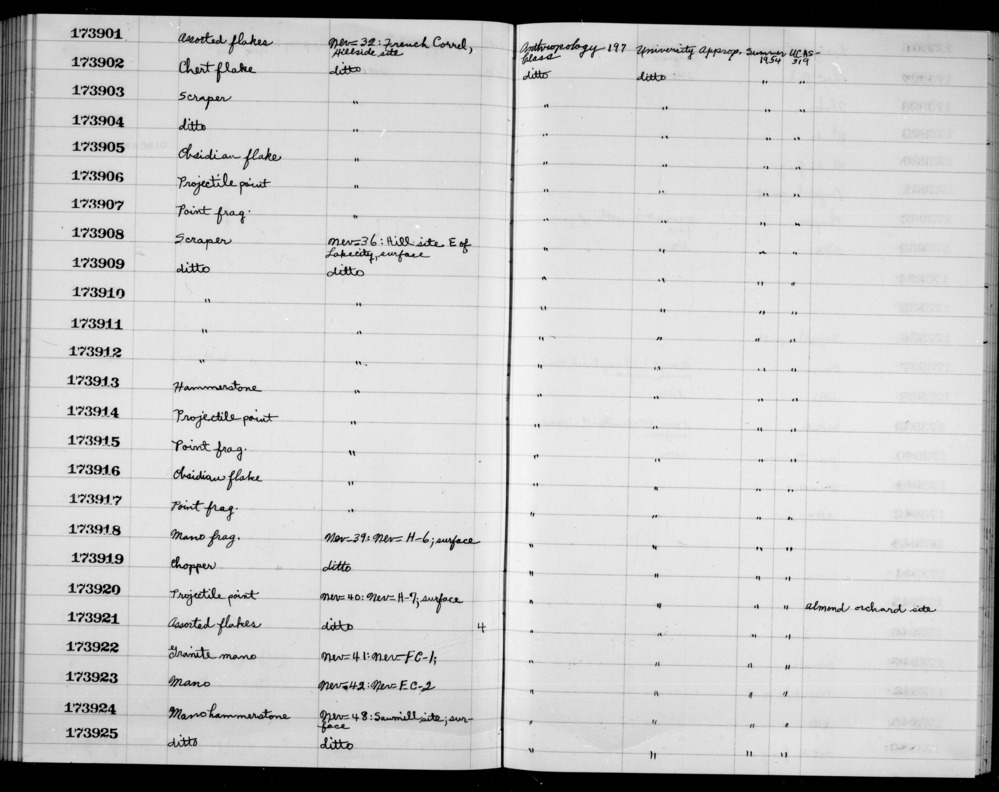 173901 Assorted flakes Nev-32: French Corral, Anthropology 197 University Approp. Summer UCAS-
Hillside site Class 1954 319
173902 Chert flake ditto ditto ditto " "
173903 Scraper " " " " "
173904 ditto " " " " "
173905 Obsidian flake " " " " "
173906 Projectile point " " " " "
173907 Point frag. " " " " "
173908 Scraper Nev-36: Hill site E of " " " "
Lake city, surface
173909 ditto ditto " " " "
173910 " " " " " "
173911 " " " " " "
173912 " " " " " "
173913 Hammerstone " " " " "
173914 Projectile point " " " " "
173915 Point frag. " " " " "
173916 Obsidian flake " " " " "
173917 Point frag. " " " " "
173918 Mano frag. Nev-39: Nev-H-6; surface " " " "
173919 Chopper ditto " " " "
173920 Projectile point Nev-40: Nev-H-7; surface " " " " almond orchard site
173921 Assorted flakes ditto 4 " " " "
173922 Granite mano Nev-41: Nev-FC-1; " " " "
173923 Mano Nev-42: Nev-FC-2 " " " "
173924 Mano hammerstone Nev-48: Sawmill site; sur- " " " "
face
173925 ditto ditto " " " "